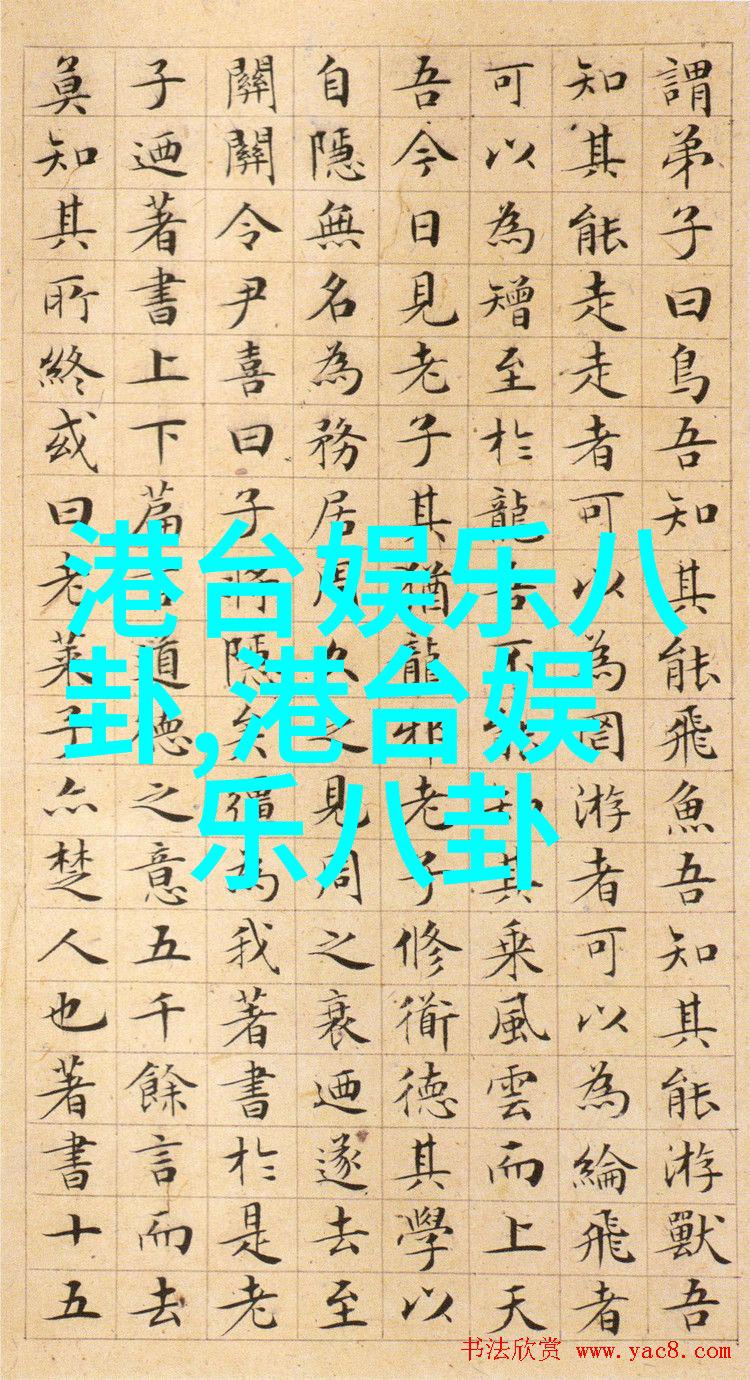 謂弟子曰鳥吾知其能飛魚吾知其能游獸吾
知其能走走者可以為罔游者可以為綸飛者
可以為矰至於龍吾不能知其乘風雲而上天
吾今日見老子其猶龍邪老子修衜德其學以
自隱無名為務居周久之見周之衰迺遂去至
關關令尹喜曰子將隱矣彊為我著書於是老
子迺著書上下篇言道德之意五千餘言而去
莫知其所終或曰老萊子亦楚人也著書十五
港台娱乐八
卦,港台娱
乐八卦
书法欣赏 www.yac8.com